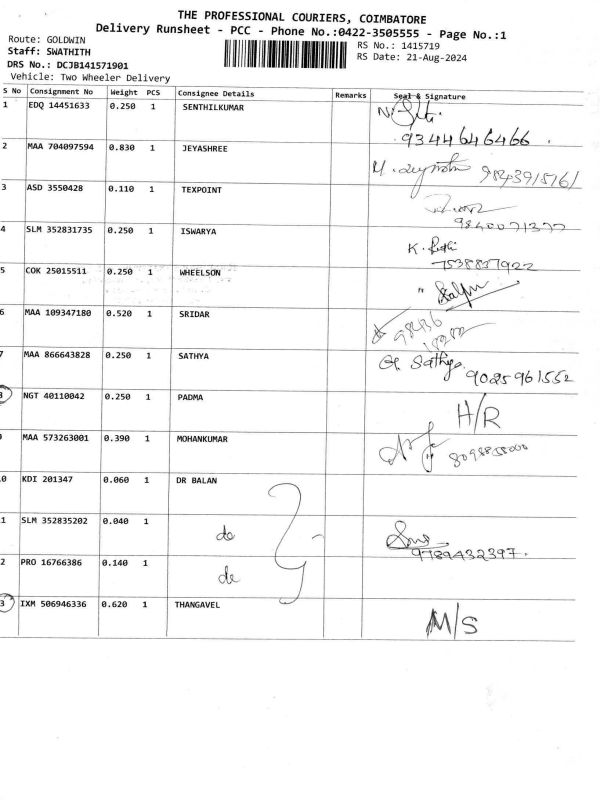 THE PROFESSIONAL COURIERS, COIMBATORE
Delivery Runsheet - PCC - Phone No.:0422-3505555 - Page No.:1
Route: GOLDWIN
RS No.: 1415719
Staff: SWATHITH
RS Date: 21-Aug-2024
DRS No.: DCJB141571901
Vehicle: Two Wheeler Delivery
S No Consignment No Weight PCS Consignee Details Remarks Seal & Signature
1 EDQ 14451633 0.250 1 SENTHILKUMAR
9344646466.
2 MAA 704097594 0.830 1 JEYASHREE
9843915761
3 ASD 3550428 0.110 1 TEXPOINT
4 SLM 352831735 0.250 1 ISWARYA
7538837922
5 COK 25015511 0.250 1 WHEELSON
6 MAA 109347180 0.520 1 SRIDAR
98436
7 MAA 866643828 0.250 1 SATHYA G. Sathya
9025961552
8 NGT 40110042 0.250 1 PADMA H/R
9 MAA 573263001 0.390 1 MOHANKUMAR
0 KDI 201347 0.060 1 DR BALAN
1 SLM 352835202 0.040 1 do
9789432397.
2 PRO 16766386 0.140 1 do
3 IXM 506946336 0.620 1 THANGAVEL M/S